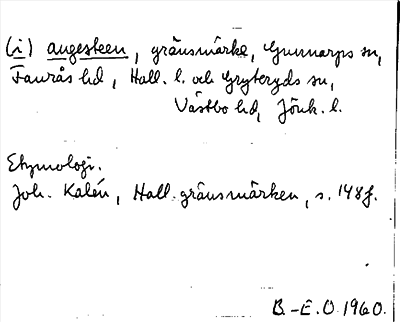 (i) angesteen, gränsmärke, Gunnarps sn,
Faurås hd, Hall. l. och Gryteryds sn,
Västbo hd, Jönk. l.
Etymologi.
Joh. Kalén, Hall. gränsmärken, s. 148 f.
B.-E.O. 1960.